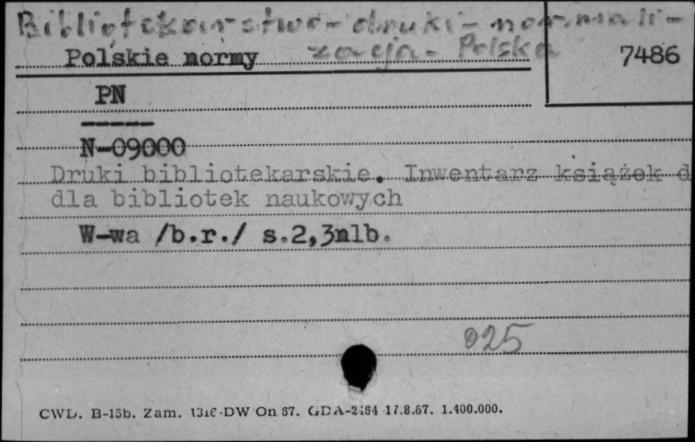 Bibliotekarstwo - druki - normali-
zacja - Polska
Polskie normy
7486
PN
N-09000
Druki bibliotekarskie. Inwentarz książek d
dla bibliotek naukowych
W-wa /b.r./ s.2,3nlb.
025
CWD. B-15b. Zam. DW On 67. GDA-2164 17.8.67. 1.400.000.